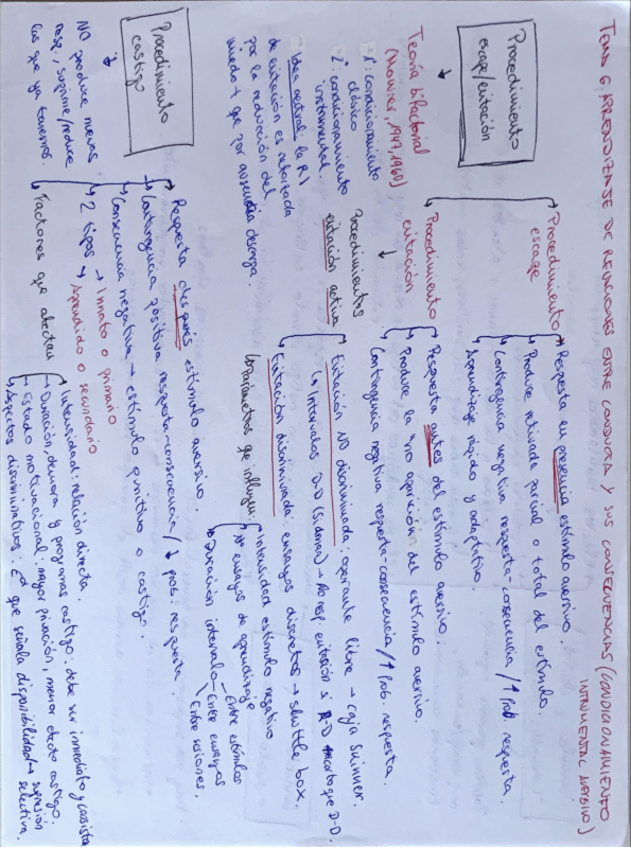 TEMA 6: APRENDIZAJE DE RELACIONES ENTRE CONDUCTA Y SUS CONSECUENCIAS (CONDICIONAMIENTO
INSTRUMENTAL AVERSIVO)
Procedimiento
escape/evitación
Procedimiento
escape
Respuesta en presencia estímulo aversivo.
Produce retirada parcial o total del estímulo.
Contingencia negativa respuesta-consecuencia / ↑ Prob. respuesta.
Aprendizaje rápido y adaptativo.
Procedimiento
evitación
Respuesta antes del estímulo aversivo.
Produce la "no aparición del estímulo aversivo.
Contingencia negativa respuesta-consecuencia / ↑ Prob. respuesta.
Teoría bifactorial
(Mowrer, 1947, 1960)
1º: condicionamiento
clásico
2º: condicionamiento
instrumental.
Idea central: la R
de evitación es reforzada
por la reducción del
miedo + que por ausencia descarga.
Procedimientos
evitación activa
Evitación NO discriminada: operante libre → caja Skinner.
Intervalos D-D (Sidman) → No resp. evitación si R-D que D-D.
Evitación discriminada: ensayos discretos → shuttle box.
Parámetros que influyen:
Intensidad estímulo negativo
Nº ensayos de aprendizaje
Duración intervalo
Entre estímulos
Entre ensayos
Entre sesiones.
Procedimiento
castigo
NO produce nuevas
resp., suprime/reduce
las que ya tenemos.
Respuesta después estímulo aversivo.
Contingencia positiva respuesta-consecuencia / ↓ prob. respuesta
Consecuencia negativa → estímulo punitivo o castigo.
2 tipos
Innato o primario
Aprendido o secundario
Factores que afectan
Intensidad: relación directa.
Duración, demora y programas castigo: debe ser inmediato y
Estado motivacional: mayor privación, menor efecto castigo.
Aspectos discriminativos: E que señala disponibilidad → supresión
selectiva.